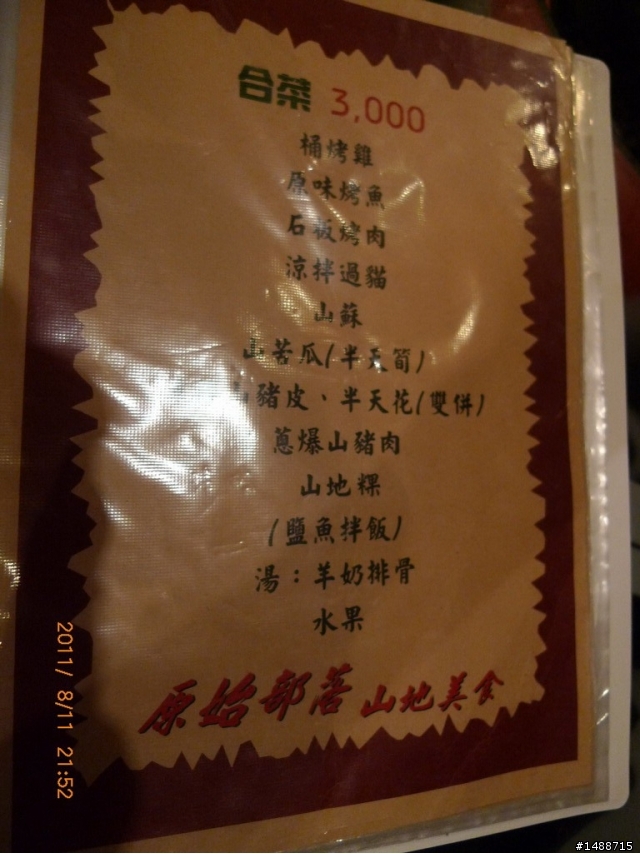 合菜 3,000
桶烤雞
原味烤魚
石板烤肉
涼拌過貓
山蘇
山苦瓜(半天筍)
山豬皮、半天花(雙併)
蔥爆山豬肉
山地粿
(鹽魚拌飯)
湯：羊奶排骨
水果
原始部落 山地美食
2011/ 8/11 21:52
#1488715